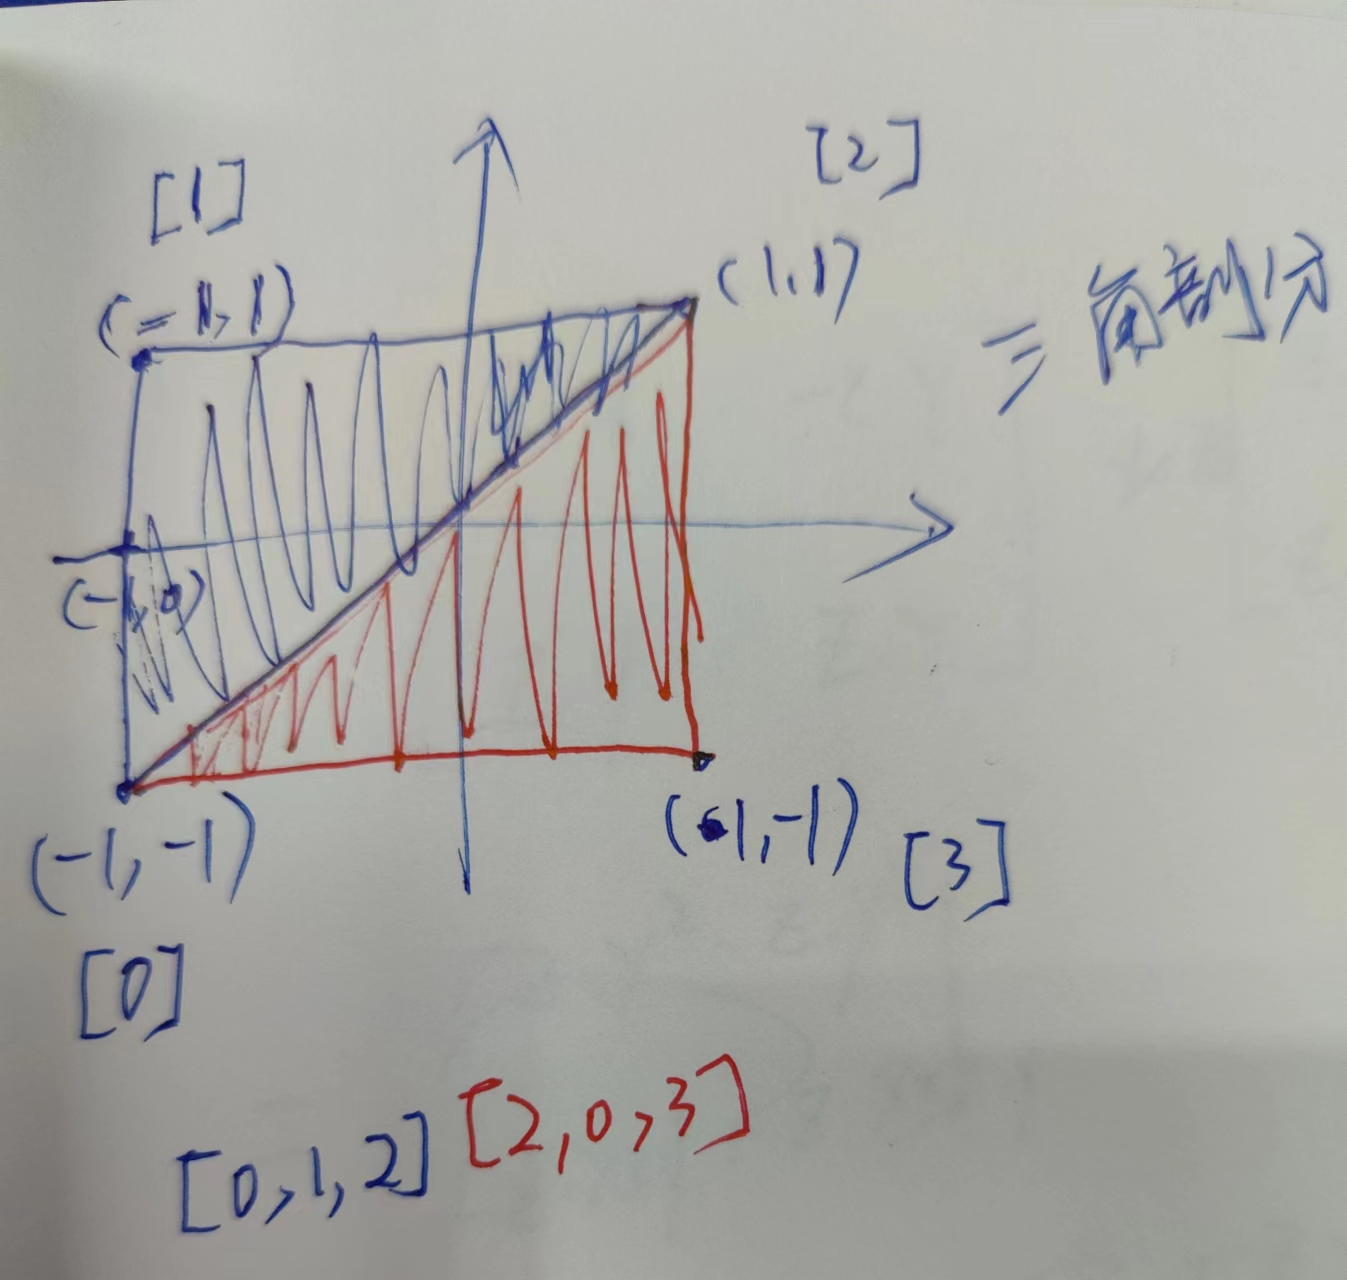 [1]
[2]
(-1,1)
(1,1)
三角剖分
(-1,0)
(-1,-1)
(1,-1)
[3]
[0]
[0,1,2] [2,0,3]